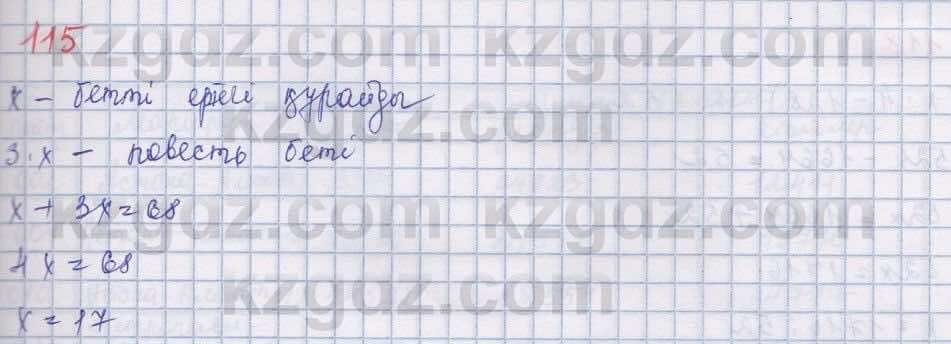 115
x – бетті ертегі құрайды
3·x – повесть беті
x + 3x = 68
4x = 68
x = 17
kzgdz.com kzgdz.com
kzgdz.com
kzgdz.com kzgdz.com
kzgdz.com